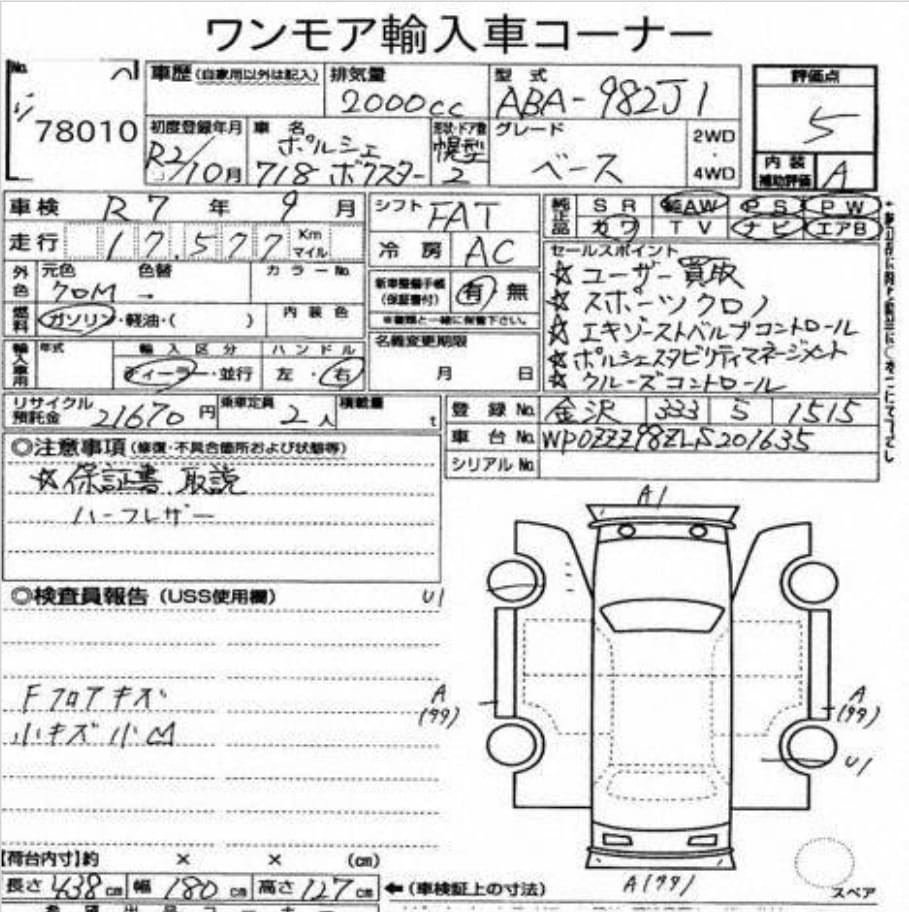 ワンモア輸入車コーナー
No.
78010
車歴 (自家用以外は記入)
排気量
2000cc
型式
ABA-982J1
評価点
5
初度登録年月
R2/10月
車名
ポルシェ
718 ボクスター
形状・ドア数
幌型
2
グレード
ベース
2WD
・
4WD
内装
補助評価
A
車検 R7年 9月
シフト FAT
純正品
SR 純AW PS PW
カワ TV ナビ エアB
走行 17,577 Km マイル
冷房 AC
セールスポイント
☆ユーザー買取
☆スポーツクロノ
☆エキゾーストバルブコントロール
☆ポルシェスタビリティマネージメント
☆クルーズコントロール
外色
元色 色替
クロM →
カラーNo.
新車整備手帳
(保証書付)
有・無
※書類と一緒に保管下さい。
燃料
ガソリン・軽油・( )
内装色
名義変更期限
月 日
輸入車用
年式
輸入区分
ディーラー・並行
ハンドル
左・右
リサイクル
預託金
21670円
乗車定員
2人
積載量
t
登録No. 金沢 333 5 1515
車台No. WP0ZZZ98ZLS201635
シリアルNo.
◎注意事項 (修復・不具合箇所および状態等)
☆保証書 取説
ハーフレザー
◎検査員報告 (USS使用欄)
Fフロアキズ
小キズ小凹
A1
U1
A
(99)
A
(99)
U1
A(99)
スペア
【荷台内寸】約 × × (cm)
長さ 438cm 幅 180cm 高さ 127cm
←(車検証上の寸法)